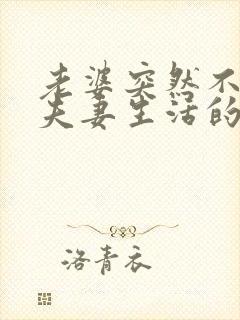 老婆突然不
夫妻生活的
洛青衣